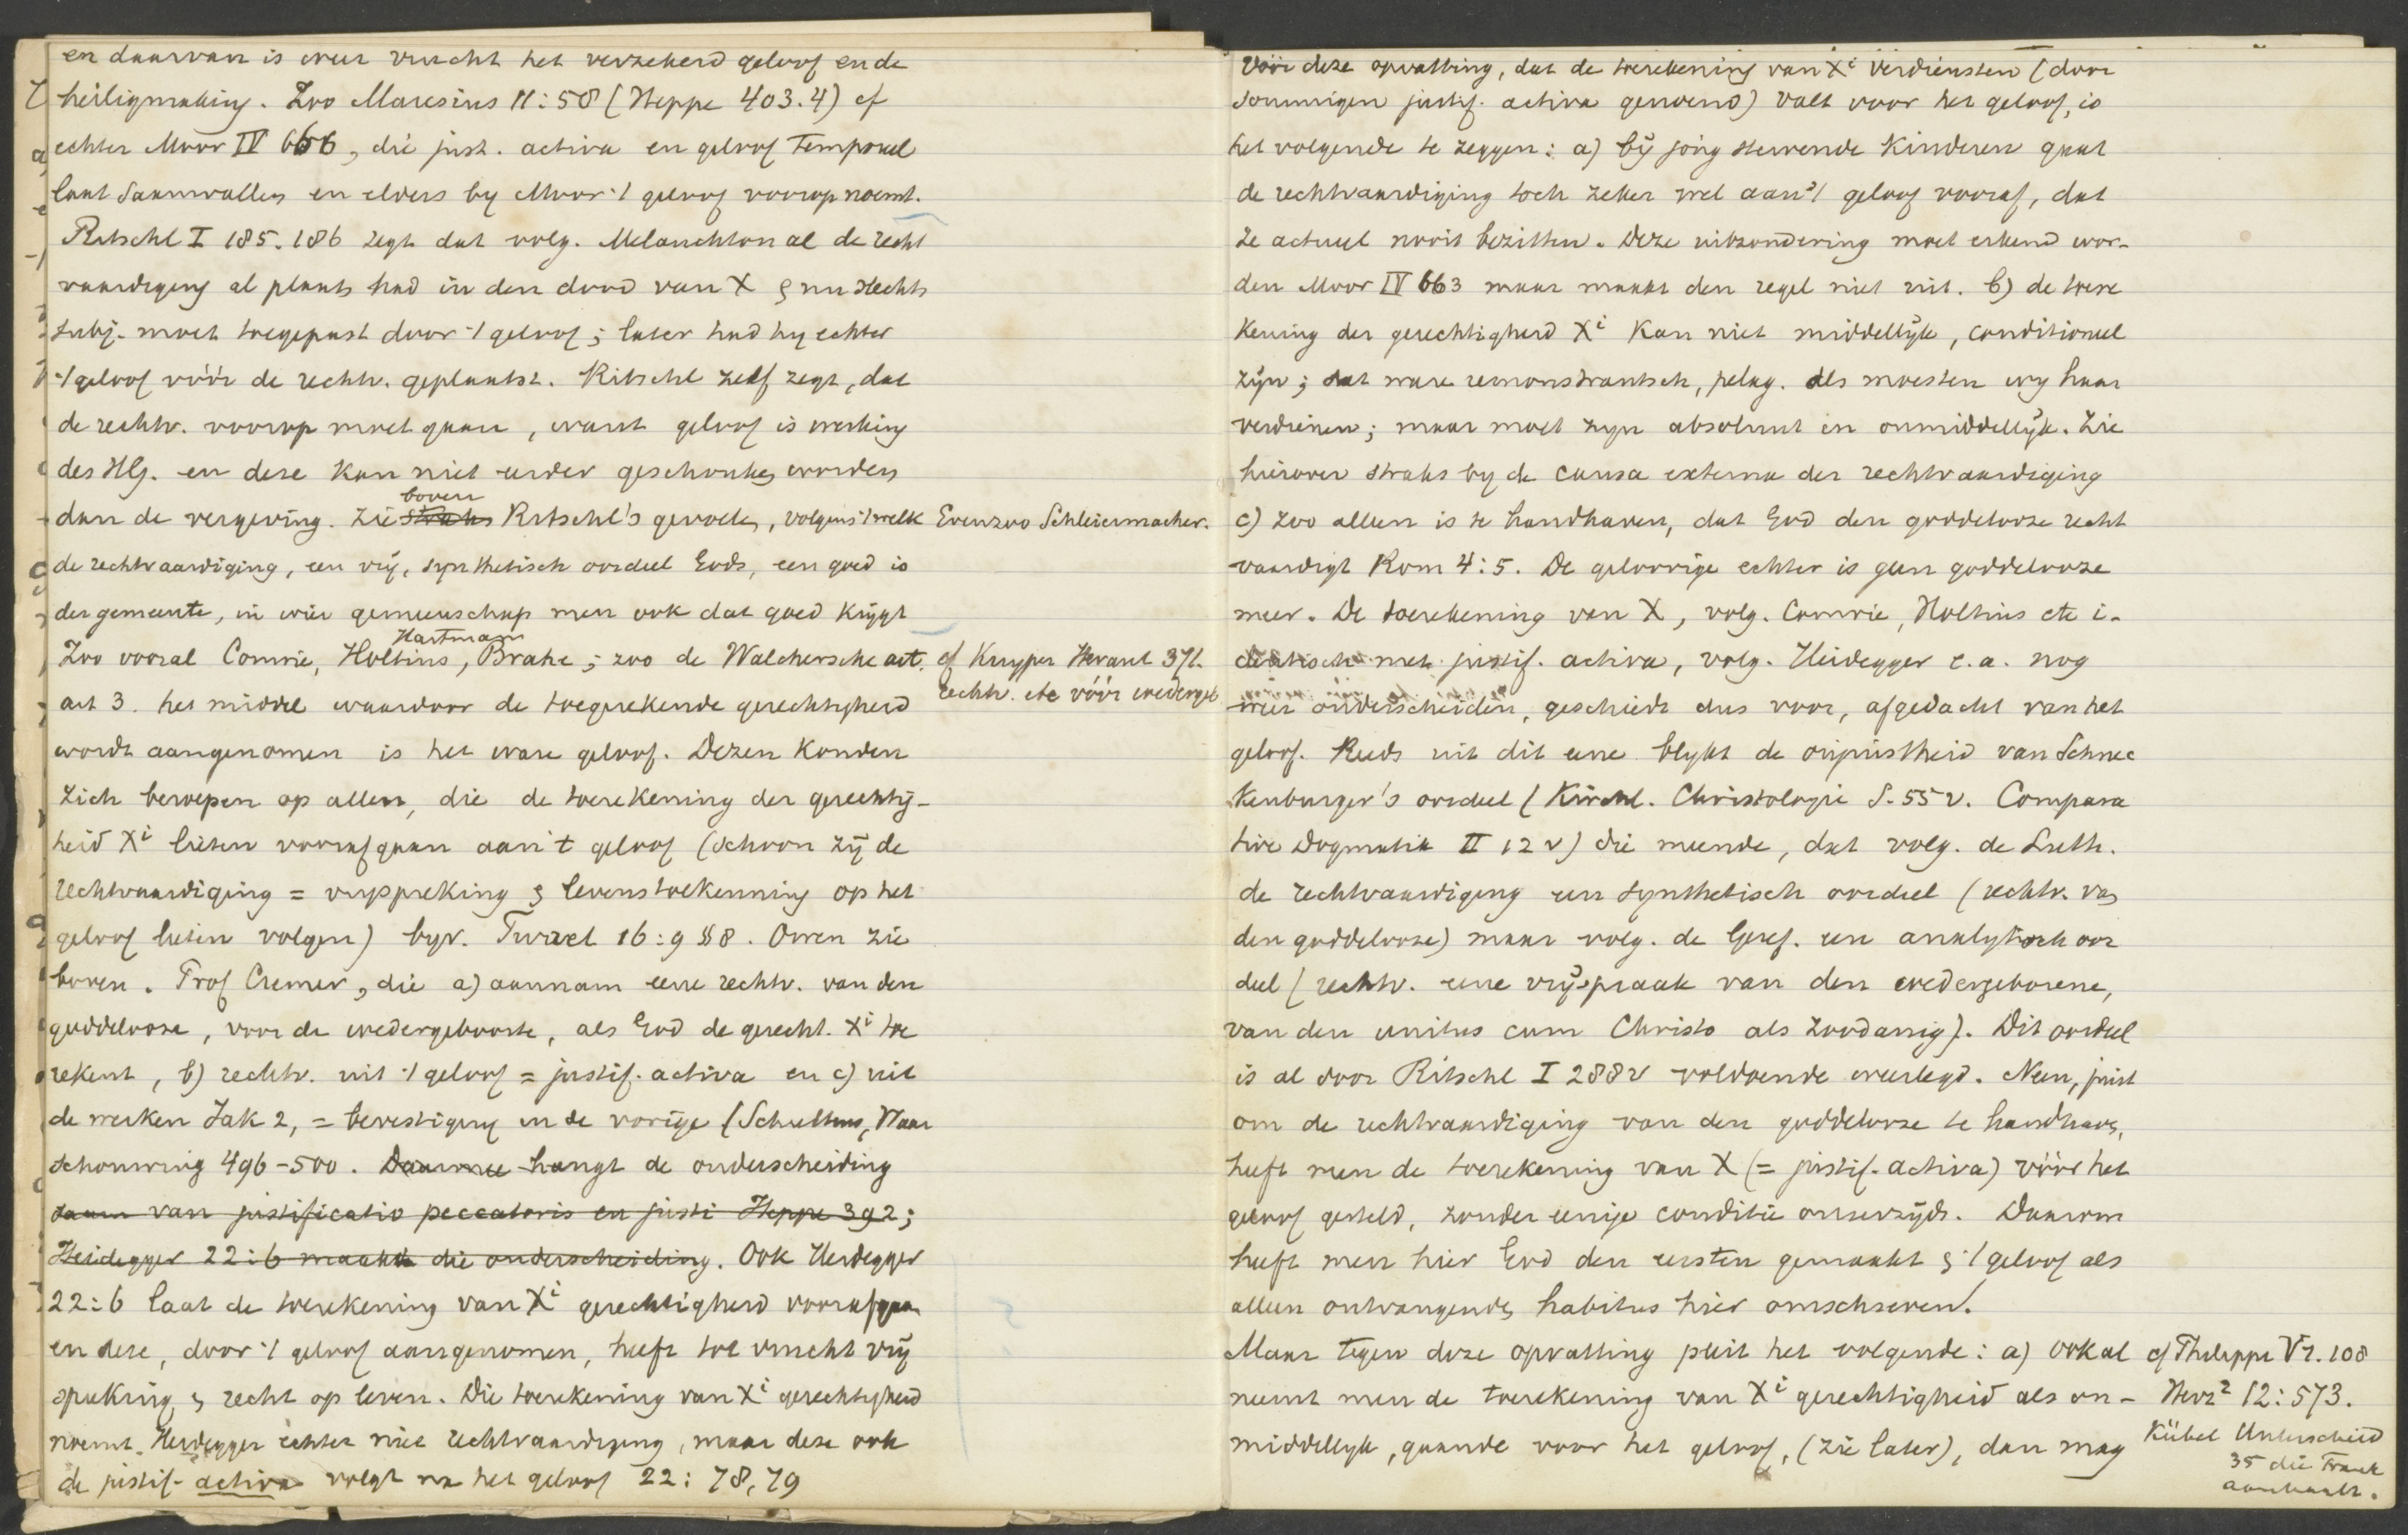 en daarvan is weer vrucht het verzekerd geloof en de
heiligmaking. Zoo Maresius 11:58 (Heppe 403.4) cf
echter Moor IV 666, die just. activa en geloof temporeel
laat saamvallen en elders by Moor 't geloof voorop noemt.
Ritschl I 185.186 zegt dat volg. Melanchton al de recht
vaardiging al plaats had in den dood van X & nu slechts
subj. moet toegepast door 't geloof; later had hy echter
't geloof vóór de rechtv. geplaatst. Ritschl zelf zegt, dat
de rechtv. voorop moet gaan, want geloof is werking
des HG. en deze kan niet eerder geschonken worden
dan de vergeving. Zie straks boven Ritschl's gevoelen, volgens 't welk
Evenzoo Schleiermacher.
de rechtvaardiging, een vrij, synthetisch oordeel Gods, een goed is
der gemeente, in wier gemeenschap men ook dat goed krijgt
Zoo vooral Comrie, Holtius, Hartmann Brahe; zoo de Walchersche art.
cf Kuyper Heraut 371.
art 3. het middel waardoor de toegerekende gerechtigheid
rechtv. etc vóór wedergeb
wordt aangenomen is het ware geloof. Dezen konden
zich beroepen op allen, die de toerekening der gerechtig-
heid Xi lieten voorafgaan aan 't geloof (schoon zij de
rechtvaardiging = vrijspreking & levenstoekenning op het
geloof lieten volgen) byv. Turret 16:9 §8. Owen zie
boven. Prof Cremer, die a) aannam eene rechtv. van den
goddelooze, voor de wedergeboorte, als God de gerecht. Xi toe
rekent, b) rechtv. uit 't geloof = justif. activa en c) uit
de werken Jak 2, = bevestiging in de vorige (Schultens, Waar
schouwing 496-500. Daarmee hangt de onderscheiding
saam van justificatio peccatoris en justi Heppe 392;
Heidegger 22:6 maakt die onderscheiding. Ook Heidegger
22:6 laat de toerekening van Xi gerechtigheid voorafgaan
en deze, door 't geloof aangenomen, heeft tot vrucht vrij
spreking & recht op leven. Die toerekening van Xi gerechtigheid
noemt Heidegger echter niet rechtvaardiging, maar deze ook
de justif. activa volgt na het geloof 22:78,79
Vóór deze opvatting, dat de toerekening van Xi verdiensten (door
sommigen justif. activa genoemd) valt voor het geloof, is
het volgende te zeggen: a) bij jong stervende kinderen gaat
de rechtvaardiging toch zeker wel aan 't geloof vooraf, dat
ze actueel nooit bezitten. Deze uitzondering moet erkend wor-
den Moor IV 663 maar maakt den regel niet uit. b) de toere
kening der gerechtigheid Xi kan niet middellijk, conditioneel
zijn; dat ware remonstrantsch, pelag. als moesten wy haar
verdienen; maar moet zyn absoluut en onmiddellijk. Zie
hierover straks by de causa externa der rechtvaardiging
c) Zoo alleen is te handhaven, dat God den goddelooze recht
vaardigt Rom 4:5. De geloovige echter is geen goddelooze
meer. De toerekening van X, volg. Comrie, Holtius etc i-
dentisch met justif. activa, volg. Heidegger e.a. nog
weer onderscheiden, geschiedt dus voor, afgedacht van het
geloof. Reeds uit dit eene blykt de onjuistheid van Schnec
kenburger's oordeel (Kirchl. Christologie S. 55 v. Compara
tive Dogmatik II 12 v) die meende, dat volg. de Luth.
de rechtvaardiging een synthetisch oordeel (rechtv. van
den goddelooze) maar volg. de Geref. een analytisch oor
deel (rechtv. eene vrijspraak van den wedergeborene,
van den unitus cum Christo als zoodanig). Dit oordeel
is al door Ritschl I 288 v voldoende weerlegd. Neen, juist
om de rechtvaardiging van den goddelooze te handhaven,
heeft men de toerekening van X (= justif. activa) vóór het
geloof gesteld, zonder eenige conditie onzerzijds. Daarom
heeft men hier God den eersten gemaakt & 't geloof als
alleen ontvangende habitus hier omschreven.
Maar tegen deze opvatting pleit het volgende: a) ook al
cf Philippi V2.108
neemt men de toerekening van Xi gerechtigheid als on-
Herz² 12:573.
middellyk, gaande voor het geloof, (zie later), dan mag
Kübel Unterscheid
35 die Frank
aanhaalt.